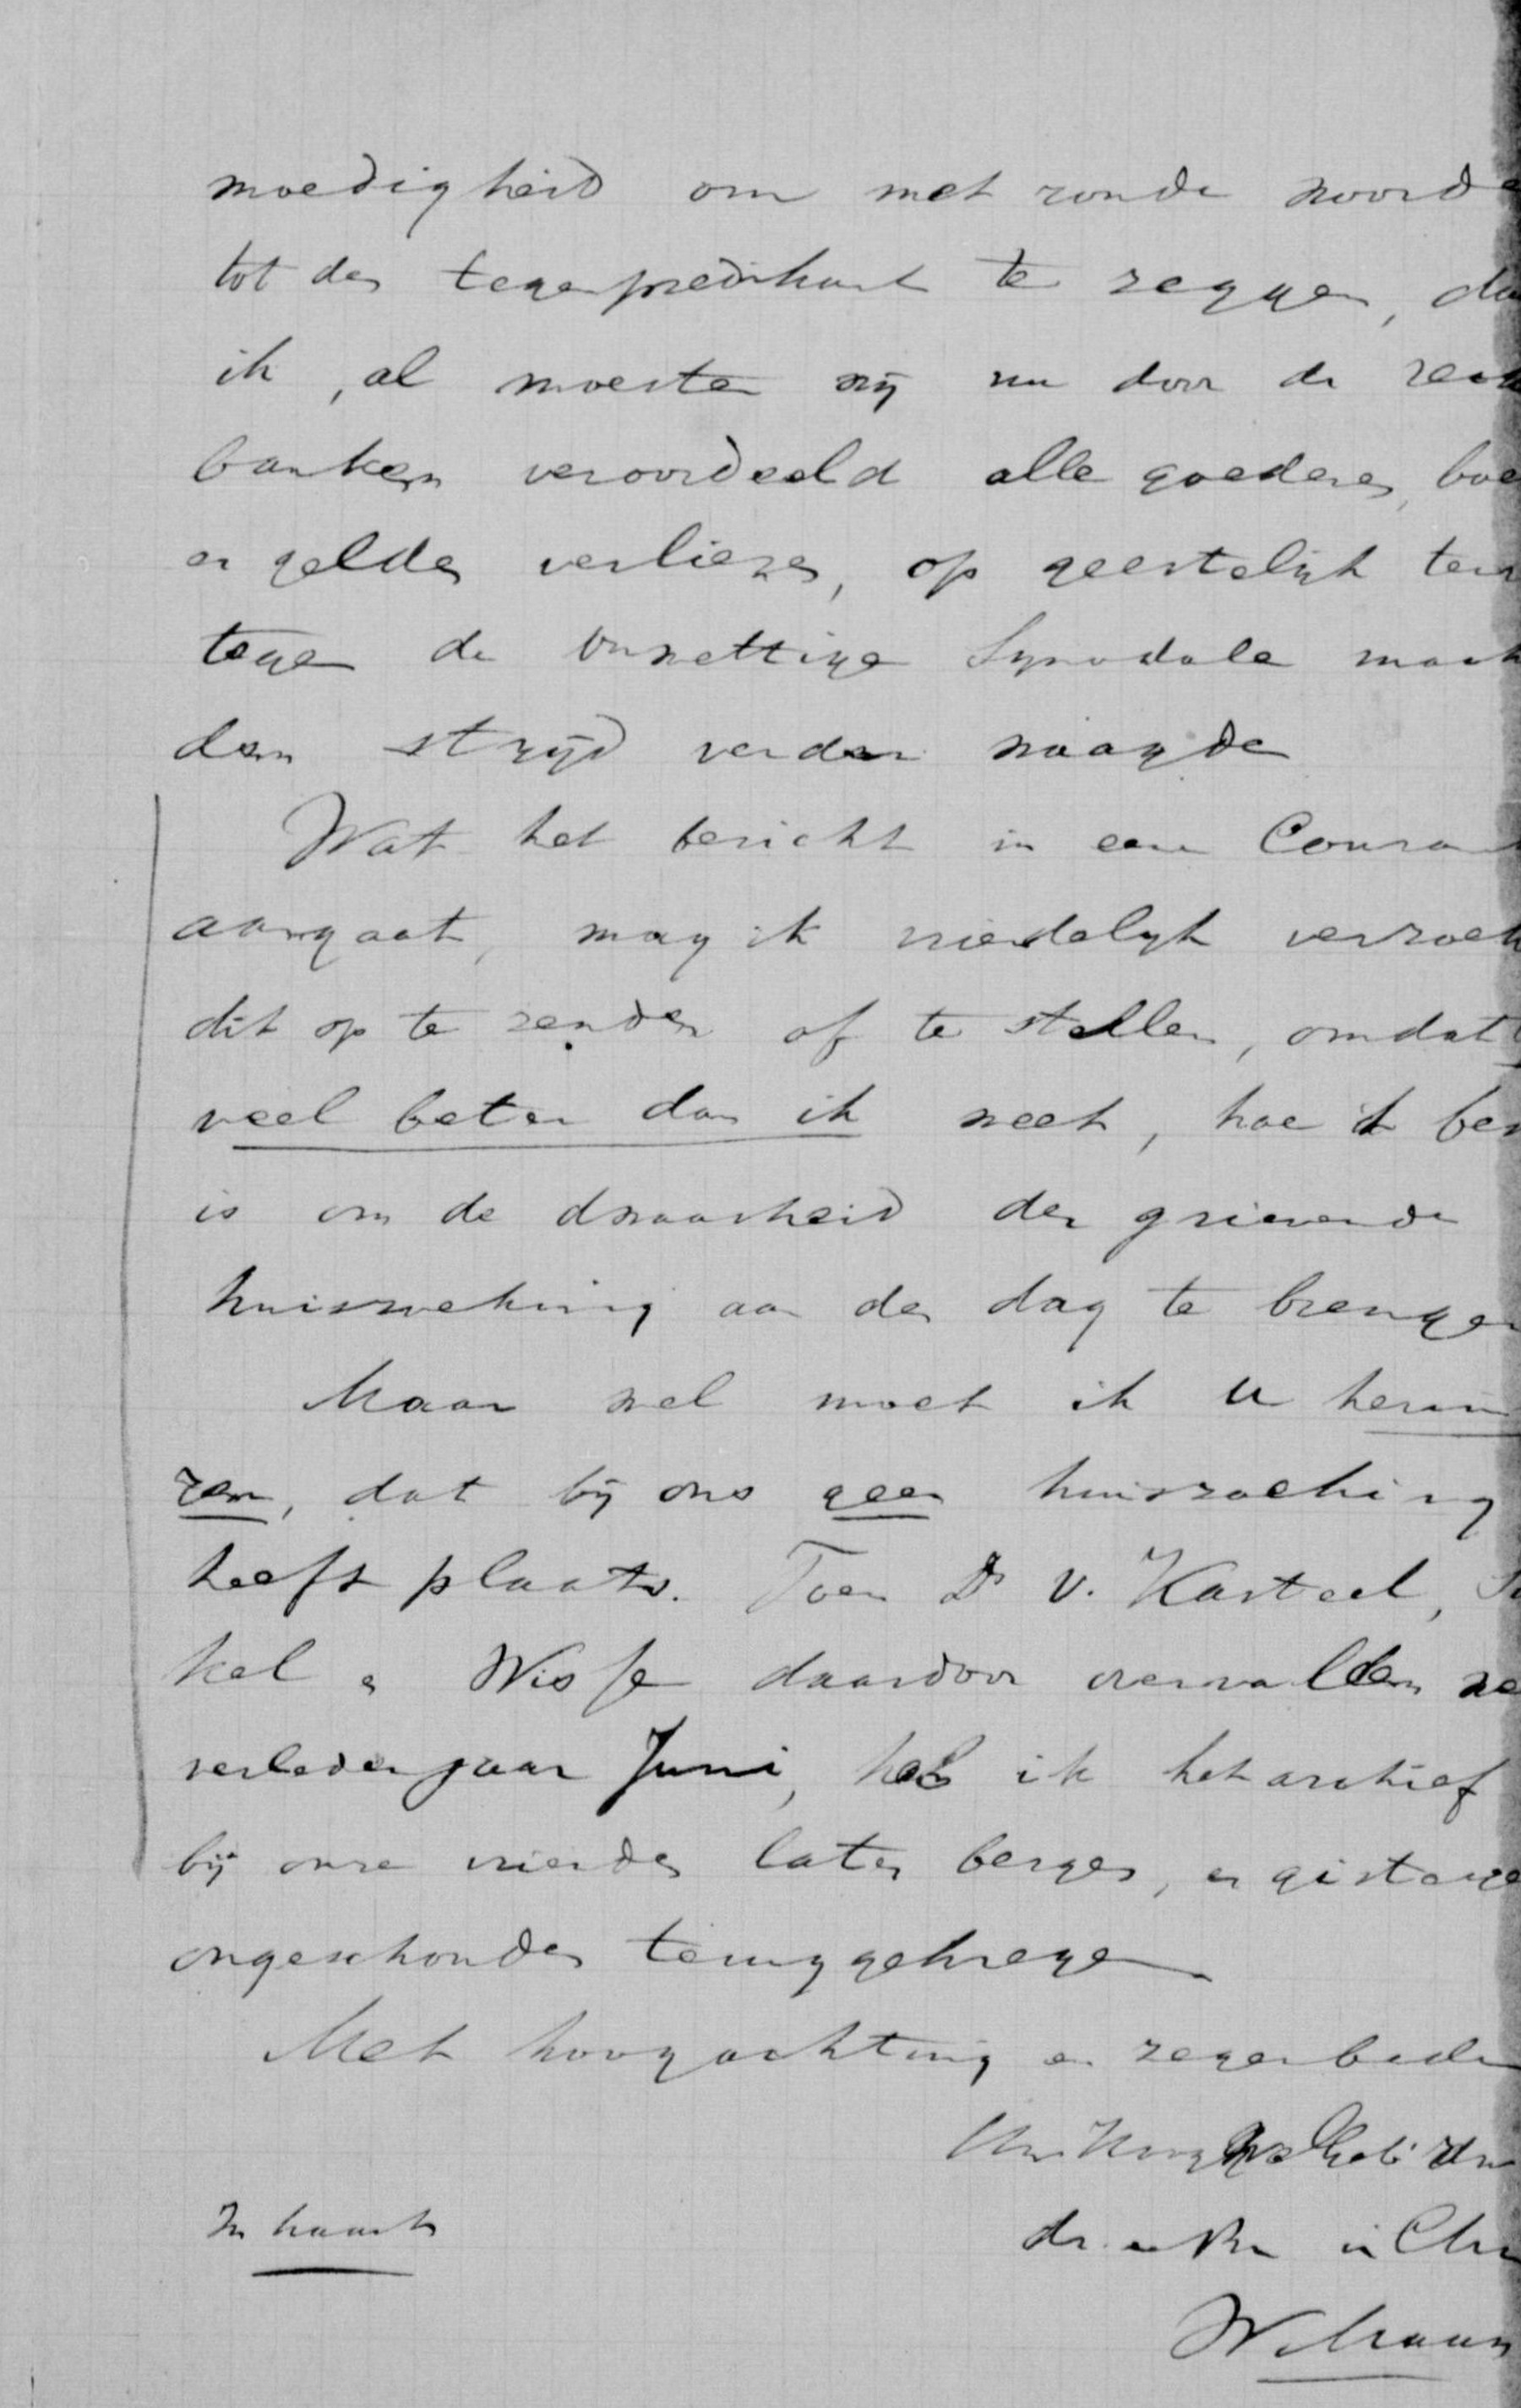 moedigheid om met ronde woorde
tot den tegenpredikant te zeggen, da
ik, al moesten wij nu door de rech
banken veroordeeld alle goederen, boe
en gelden verliezen, op geestelijk terr
tegen de onwettige Synodale mach
den strijd verder waagde
Wat het bericht in een Couran
aangaat, mag ik vriendelijk verzoek
dit op te zenden of te stellen, omdat
veel beter dan ik weet, hoe ik ben
is om de dwaasheid der grievende
huiszoeking aan den dag te brengen
Maar wel moet ik U herin
ren, dat bij ons geen huiszoeking
heeft plaats. Toen Ds v. Kasteel,
kel en Wisse daardoor overvallen we
verleden jaar Juni, heb ik het archief
bij onze vrienden laten bergen, en gisteren
ongeschonden teruggekregen
Met hoogachting en zegenbede
in Chr
In haast
W. Maan